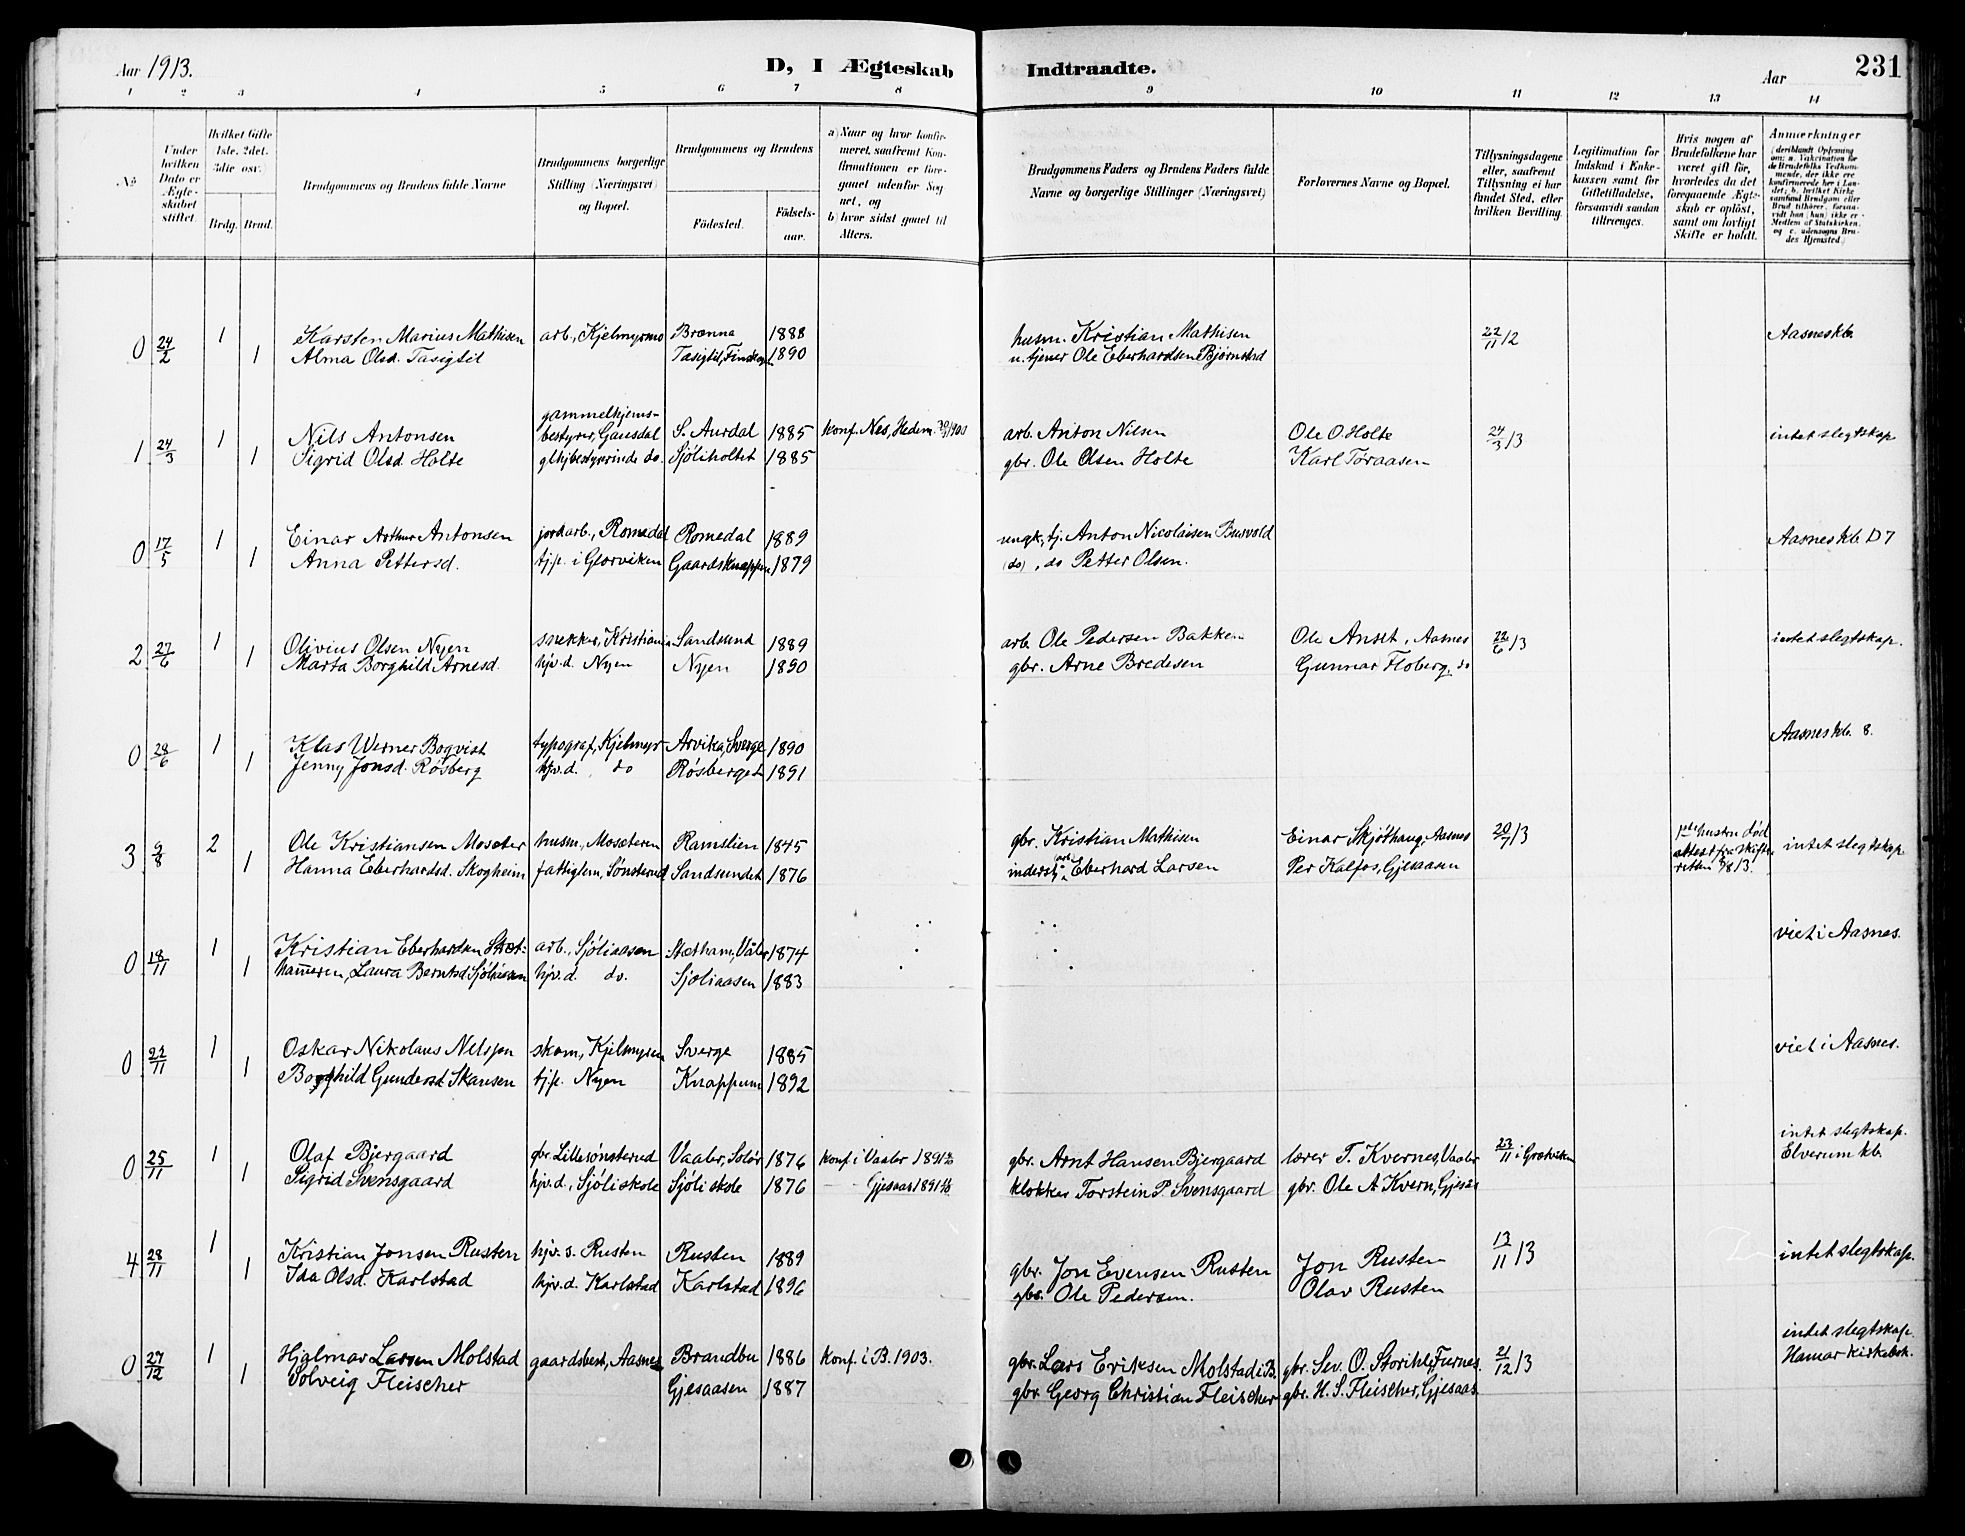 Aar 1913.
D, I Ægteskab Indtraadte.
Aar
231
1 2 3 4 5 6 7 8 9 10 11 12 13 14
No
Under hvilken Dato er Ægteskabet stiftet.
Hvilket Gifte 1ste. 2det. 3die osv.
Brdg. Brud.
Brudgommens og Brudens fulde Navne
Brudgommens borgerlige Stilling (Næringsvei) og Bopæl.
Brudgommens og Brudens
Fødested.
Fødselsaar.
a) Naar og hvor konfirmeret, saafremt Konfirmationen er foregaaet udenfor Sognet, og
b) hvor sidst gaaet til Alters.
Brudgommens Faders og Brudens Faders fulde Navne og borgerlige Stillinger (Næringsvei)
Forlovernes Navne og Bopæl.
Tillysningsdagene eller, saafremt Tillysning ei har fundet Sted, efter hvilken Bevilling.
Legitimation for Indskud i Enkekassen samt for Giftetilladelse, forsaavidt saadan tiltrænges.
Hvis nogen af Brudefolkene har været gift før, hvorledes da det foregaaende Ægteskab er opløst, samt om lovligt Skifte er holdt.
Anmærkninger (deriblandt Oplysning om: a. Vakcination for de Brudefolks Vedkommende, der ikke ere konfirmerede her i Landet; b. hvilket Kirkesamfund Brudgom eller Brud tilhører, forsaavidt han (hun) ikke er Medlem af Statskirken, og c. udensogns Brudes Hjemsted.)
0 24/2 1 Karsten Marius Mathisen arb., Kjelmyrmo Brænna 1888 husm. Kristian Mathisen 22/11 12 Aasnes kb.
1 Alma Olsd. Tasigtit Tasigtit, Finskogen 1890 u. tjener Ole Eberhardsen Bjørnstad
1 24/3 1 Nils Antonsen gammelhjemsbestyrer, Gausdal S. Aurdal 1885 konf. Nes, Hedem. 1900 arb. Anton Nilsen Ole O. Holte 24/3 13 intet slegtskap
1 Sigrid Olsd Holte glhjbestyrerinde do. Sjøliholtet 1885 gbr. Ole Olsen Holte Karl Toraasen
0 17/5 1 Einar Arthur Antonsen jordarb., Romedal Romedal 1889 ungk., tj. Anton Nicolaisen Busvold Aasnes kb. D 7
1 Anna Pettersd. tj.p. i Glorviken Gaardsknappen 1879 (do), do Petter Olsen.
2 27/6 1 Olivius Olsen Nyen snekker, Kristiania Sandsund 1889 arb. Ole Pedersen Bakken Ole Anset, Aasnes 22/6 13 intet slegtskap.
1 Marta Borghild Arnesd. hjv.d. Nyen Nyen 1890 gbr. Arne Bredesen Gunnar Floberg, do
0 28/6 1 Klas Werner Bogvist typograf, Kjelmyr Arvika, Sverge 1890 Aasnes kb. 8.
1 Jenny Jonsd. Røsberg hjv.d. do Røsberget 1891
3 9/8 2 Ole Kristiansen Moseter husm., Moseteren Ramslien 1845 gbr. Kristian Mathisen Einar Skjøthaug, Aasnes 20/7 13 1ste hustru død attest fra skifteretten 8/8 13. intet slegtskap
1 Hanna Eberhardsd. Skogheim fattiglem, Sønsterud Sandsundet 1876 inderst (arb.) Eberhard Larsen Per Kalfos, Gjesaasen
0 18/11 1 Kristian Eberhardsen Stæt- arb., Sjøliaasen Stætham, Våler 1874 viet i Aasnes.
1 hammeren, Laura Berntsd. Sjøliaasen hjv.d. do. Sjøliaasen 1883
0 22/11 1 Oskar Nikolaus Nelsson skom., Kjelmyren Sverge 1885 viet i Aasnes.
1 Borghild Gundersd. Skansen tj.p. Nyen Knappum 1892
0 25/11 1 Olaf Bjergaard gbr. Lillesønsterud Vaaler, Solør 1876 konf. i Vaaler 1891 gbr. Arnt Hansen Bjergaard lærer T. Kvernes, Vaaler 23/11 i Grøtviken intet slegtskap. Elverum kb.
1 Sigrid Svensgaard hjv.d., Sjøliskole Sjøliskole 1876 — Gjesaas 1891 klokker Torstein P. Svensgaard gbr. Ole A. Kvern, Gjesås
4 28/11 1 Kristian Jonsen Rusten hjv.s. Rusten Rusten 1889 gbr. Jon Evensen Rusten Jon Rusten 13/11 13 intet slegtskap.
1 Ida Olsd. Karlstad hjv.d. Karlstad Karlstad 1896 gbr. Ole Pedersen. Olav Rusten
0 27/12 1 Hjalmar Larsen Molstad gaardsbest., Aasnes Brandbu 1886 Konf. i B. 1903. gbr. Lars Eriksen Molstad i B. gbr. Sev. O. Storihle, Furnes 21/12 13 intet slegtskap. Hamar kirkebok.
1 Solveig Fleischer Gjesaasen 1887 gbr. Georg Christian Fleischer gbr. H. S. Fleischer, Gjesaas